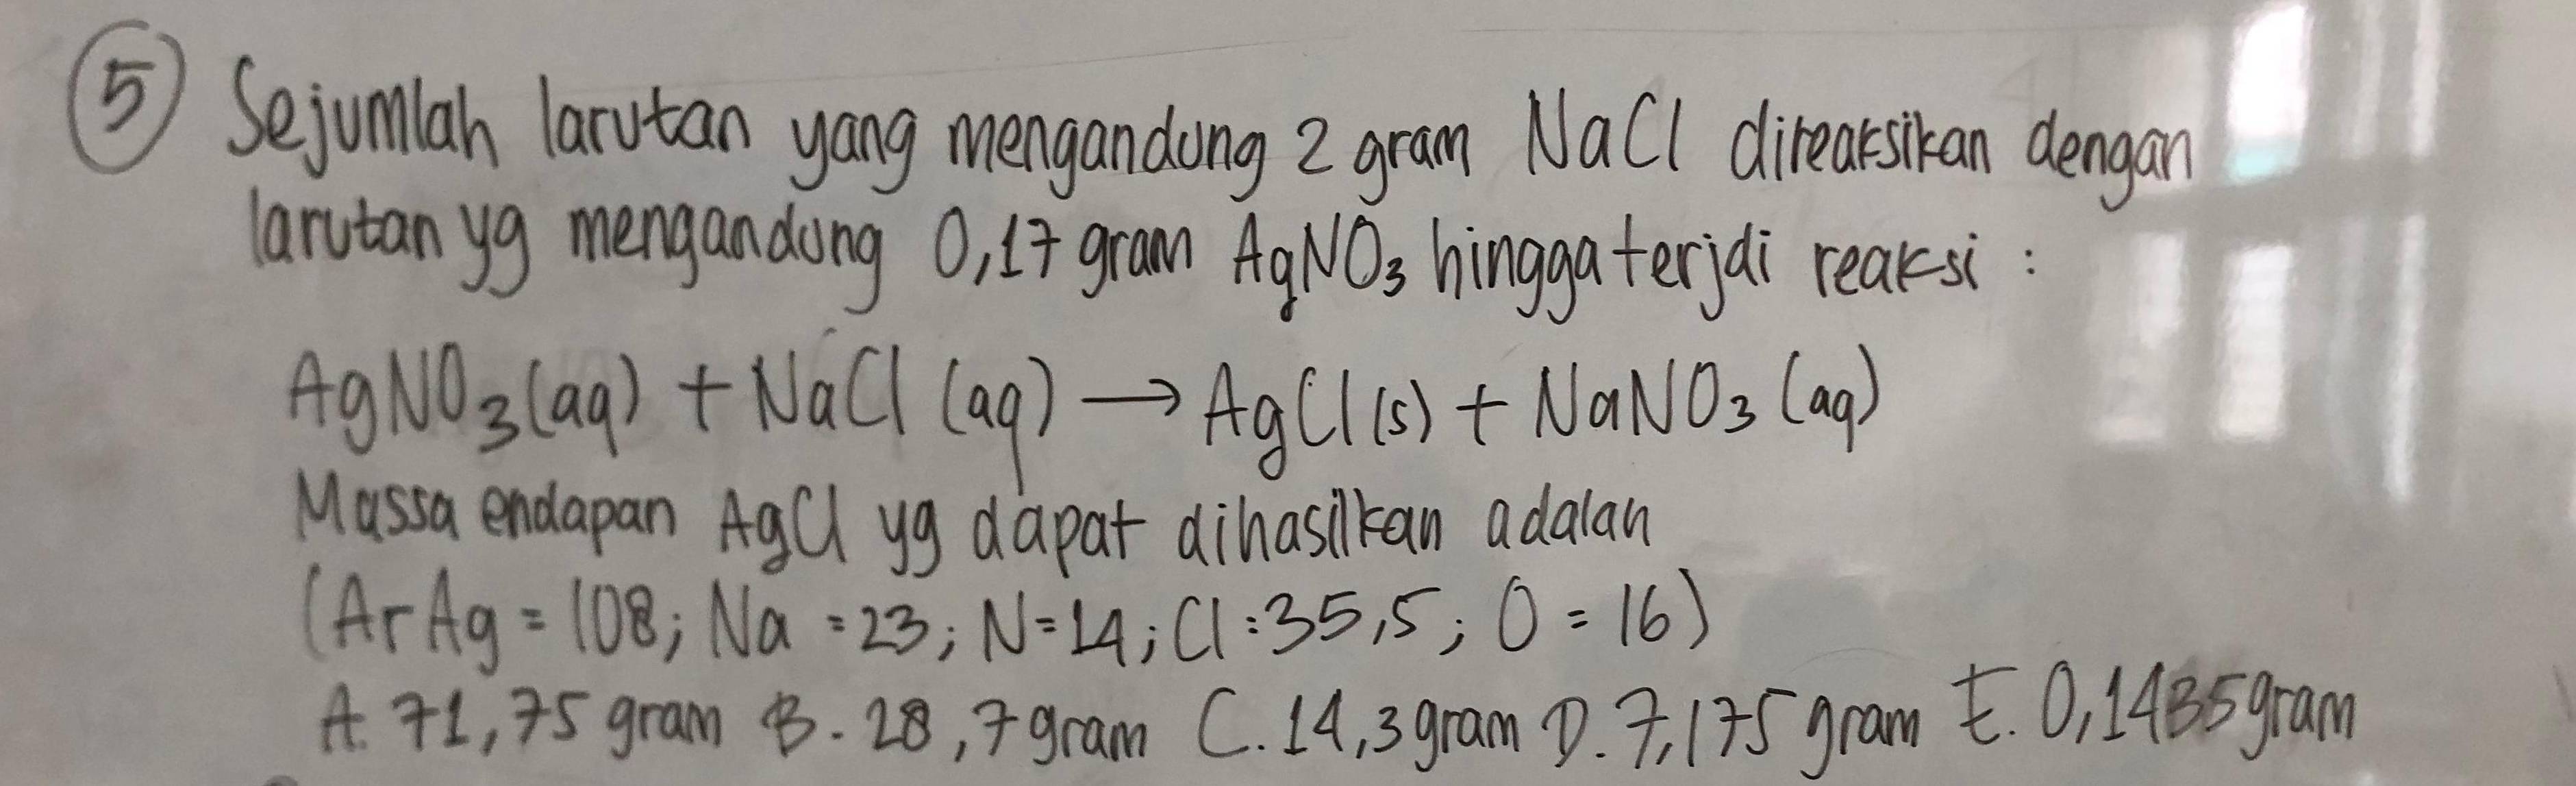 5 Sejumlah larutan yang mengandung 2 gram NaCl direaksikan dengan
larutan yg mengandung 0,17 gram AgNO₃ hingga terjdi reaksi :
AgNO₃(aq) + NaCl (aq) → AgCl (s) + NaNO₃ (aq)
Massa endapan AgCl yg dapat dihasilkan adalah
(Ar Ag = 108; Na = 23; N = 14; Cl : 35,5; O = 16)
A. 71,75 gram B. 28,7 gram C. 14,3 gram D. 7,175 gram E. 0,1435 gram